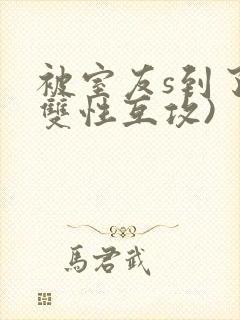 被室友s到了
雙性互攻)
馬君武